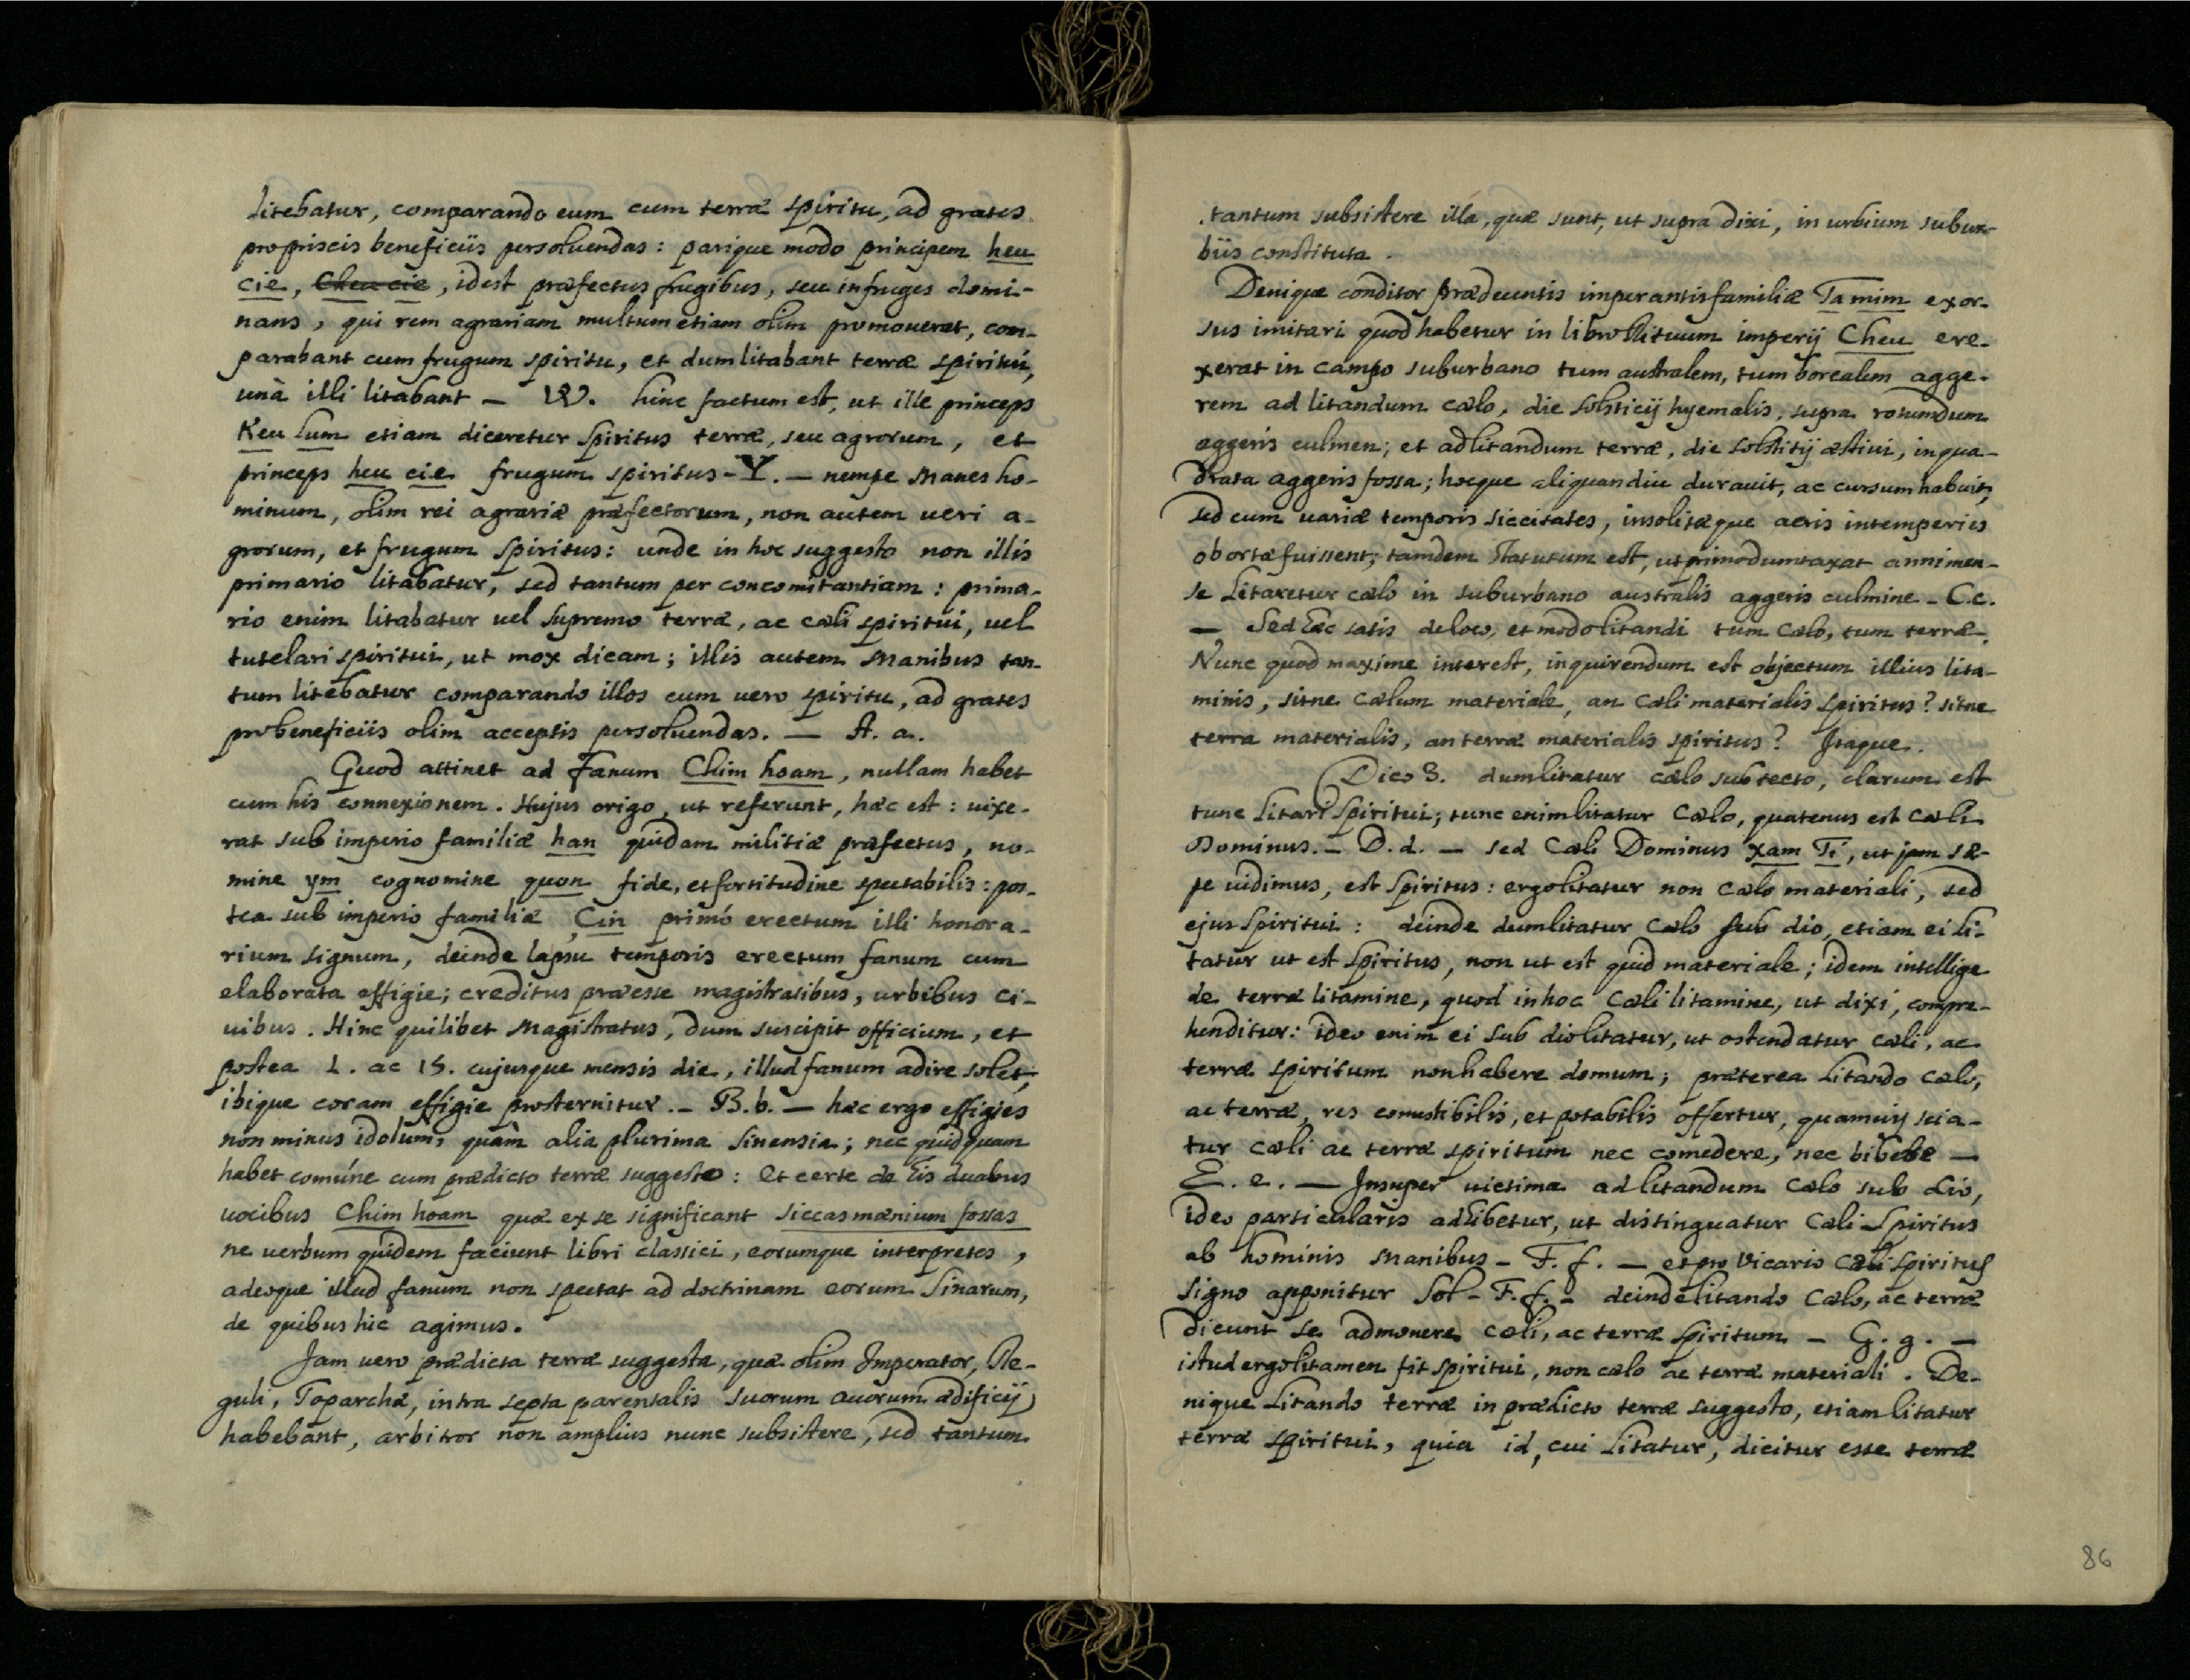 litebatur, comparando eum cum terræ spiritu, ad grates
pro priscis beneficiis persoluendas: parique modo principem heu
cie, Cheu cie, idest præfectus frugibus, seu in fruges domi-
nans, qui rem agrariam multum etiam olim promouerat, com-
parabant cum frugum spiritu, et dum litabant terræ spiritui,
unà illi litabant - W. hinc factum est, ut ille princeps
Keu lum etiam diceretur spiritus terræ, seu agrorum, et
princeps heu cie frugum spiritus - Y. - nempe manes ho-
minum, olim rei agrariæ præfectorum, non autem ueri a-
grorum, et frugum spiritus: unde in hoc suggesto non illis
primario litabatur, sed tantum per concomitantiam: prima-
rio enim litabatur uel supremo terræ, ac cæli spiritui, uel
tutelari spiritui, ut mox dicam; illis autem manibus tan-
tum litebatur comparando illos cum uero spiritu, ad grates
pro beneficiis olim acceptis persoluendas. - A. a.
Quod attinet ad fanum Chim hoam, nullam habet
cum his connexionem. Hujus origo, ut referunt, hæc est: uixe-
rat sub imperio familiæ han quidam militiæ præfectus, no-
mine ym cognomine quon fide, et fortitudine spectabilis: pos-
tea sub imperio familiæ Cin primó erectum illi honora-
rium signum, deinde lapsu temporis erectum fanum cum
elaborata effigie; creditus præesse magistratibus, urbibus ci-
uibus. Hinc quilibet Magistratus, dum suscipit officium, et
postea 1. ac 15. cujusque mensis die, illud fanum adire solet,
ibique coram effigie prosternitur. - B. b. - hæc ergo effigies
non minus idolum, quàm alia plurima sinensia; nec quidquam
habet comúne cum prædicto terræ suggesto: Et certe de his duabus
uocibus Chim hoam quæ ex se significant siccas mænium fossas
ne uerbum quidem faciunt libri classici, eorumque interpretes,
adeoque illud fanum non spectat ad doctrinam eorum Sinarum,
de quibus hic agimus.
Jam uero prædicta terræ suggesta, quæ olim Imperator, Re-
guli, Toparchæ, intra septa parentalis suorum auorum ædificij
habebant, arbitror non amplius nunc subsistere, sed tantum
tantum subsistere illa, quæ sunt, ut supra dixi, in urbium subur-
biis constituta.
Denique conditor prædeuntis imperantis familiæ Ta mim exor-
sus imitari quod habetur in libro Rituum imperij Cheu ere-
xerat in campo suburbano tum australem, tum borealem agge-
rem ad litandum cælo, die solsticij hyemalis, supra rotundum
aggeris culmen; et ad litandum terræ, die solstitij æstiui, in qua-
drata aggeris fossa; hocque aliquandiu durauit, ac cursum habuit,
sed cum uariæ temporis siccitates, insolitæque aeris intemperies
obortæ fuissent; tamdem statutum est, ut primo dumtaxat anni men-
se litaretur cælo in suburbano australis aggeris culmine - C.c.
- Sed hæc satis de loco, et modo litandi tum Cælo, tum terræ.
Nunc quod maxime interest, inquirendum est objectum illius lita-
minis, sitne Cælum materiale, an Cæli materialis spiritus? sitne
terra materialis, an terræ materialis spiritus? Itaque.
Dico 3. dum litatur cælo sub tecto, clarum est
tunc litari spiritui; tunc enim litatur Cælo, quatenus est Cæli
Dominus. - D. d. - sed Cæli Dominus Xam Ti, ut jam sæ-
pe uidimus, est spiritus: ergo litatur non Cælo materiali, sed
ejus spiritui: deinde dum litatur Cælo sub dio, etiam ei li-
tatur ut est spiritus, non ut est quid materiale; idem intellige
de terræ litamine, quod in hoc Cæli litamine, ut dixi, compre-
henditur: ideo enim ei sub dio litatur, ut ostendatur cæli, ac
terræ spiritum non habere domum; præterea litando cælo,
ac terræ, res comestibilis, et potabilis offertur, quamuis scia-
tur cæli ac terræ spiritum nec comedere, nec bibere -
E. e. - Insuper uictima ad litandum Cælo sub dio,
ideo particularis adhibetur, ut distinguatur Cæli spiritus
ab hominis manibus - F. f. - et pro Vicario Cæli spiritus
signo apponitur Sol - F. f. - deinde litando Cælo, ac terræ
dicunt se admonere cæli, ac terræ spiritum - G. g. -
istud ergo litamen fit spiritui, non cælo ac terræ materiali. De-
nique litando terræ in prædicto terræ suggesto, etiam litatur
terræ spiritui, quia id, cui litatur, dicitur esse terræ
86